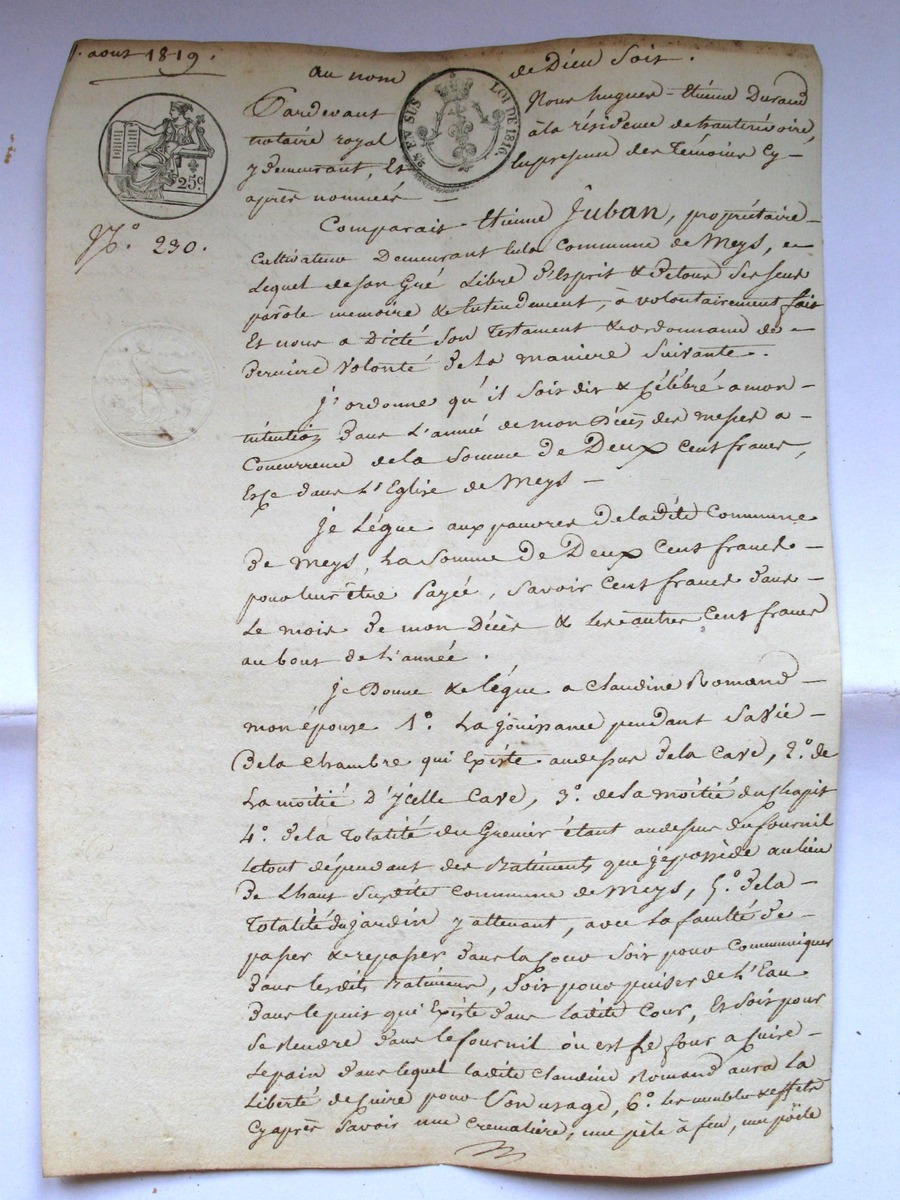 aout 1819.
au nom de Dieu Soit.
Pardevant Nous hugues-Etienne Durand
notaire royal à la résidence de hauterivoire,
y demeurant, Et en presence des Temoins Cy-
après nommés —
25 c
25 EN SUS LOI DE 1816.
N.° 230.
Comparait Etienne Juban, propriétaire-
Cultivateur Demeurant en la Commune de Meys,
Lequel de son Gré Libre d'Esprit & de tous Ses Sens
parole memoire & Entendement, à volontairement fait
Et nous a Dicté Son Testament & ordonnance de
Derniere Volonté de la maniere Suivante.
J'ordonne qu'il Soit dit & Célébré a mon
intention dans L'année de mon Décès des messes a
Concurrence de la Somme de Deux Cent francs,
Et ce dans L'Eglise de Meys —
je Légue aux pauvres de ladite Commune
de Meys, La Somme de Deux Cent francs —
pour leur être Payée, Savoir Cent francs dans —
Le mois de mon Décès & Les autres Cent francs
au bout de L'année.
je Donne & légue a Claudine Romand —
mon épouse 1°. La jouissance pendant Sa Vie —
De la Chambre qui Existe au dessus de la Cave, 2°. de
La moitié d'Ycelle Cave, 3°. de la moitié du Chapit
4°. de la Totalité du Grenier étant au dessus du fournil
le tout dépendant des Batiments que je possède au lieu
de Lhaut Susdite Commune de Meys, 5°. de la —
Totalité du jardin y attenant, avec La faculté de —
passer & repasser dans la Cour Soit pour Communiquer
dans lesdits Batiments, Soit pour puiser de L'Eau
dans le puit qui Existe dans ladite Cour, Et Soit pour
Se Rendre dans le fournil où est le four a Cuire —
Le pain dans lequel ladite Claudine Romand aura la
Liberté de Cuire pour Son usage, 6°. les meubles & effets
Cy après Savoir une Crematiere, une pèle à feu, une poële